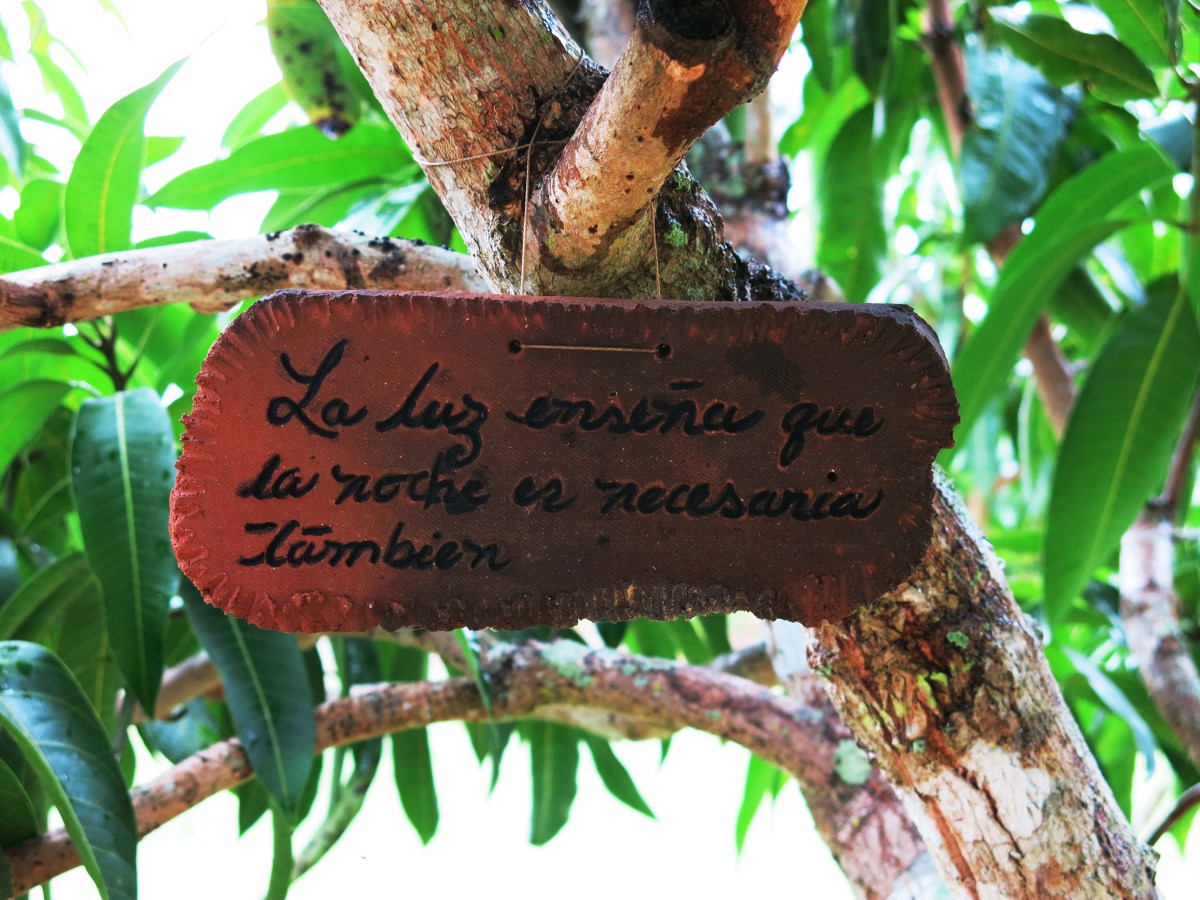 La luz enseña que
la noche es necesaria
también